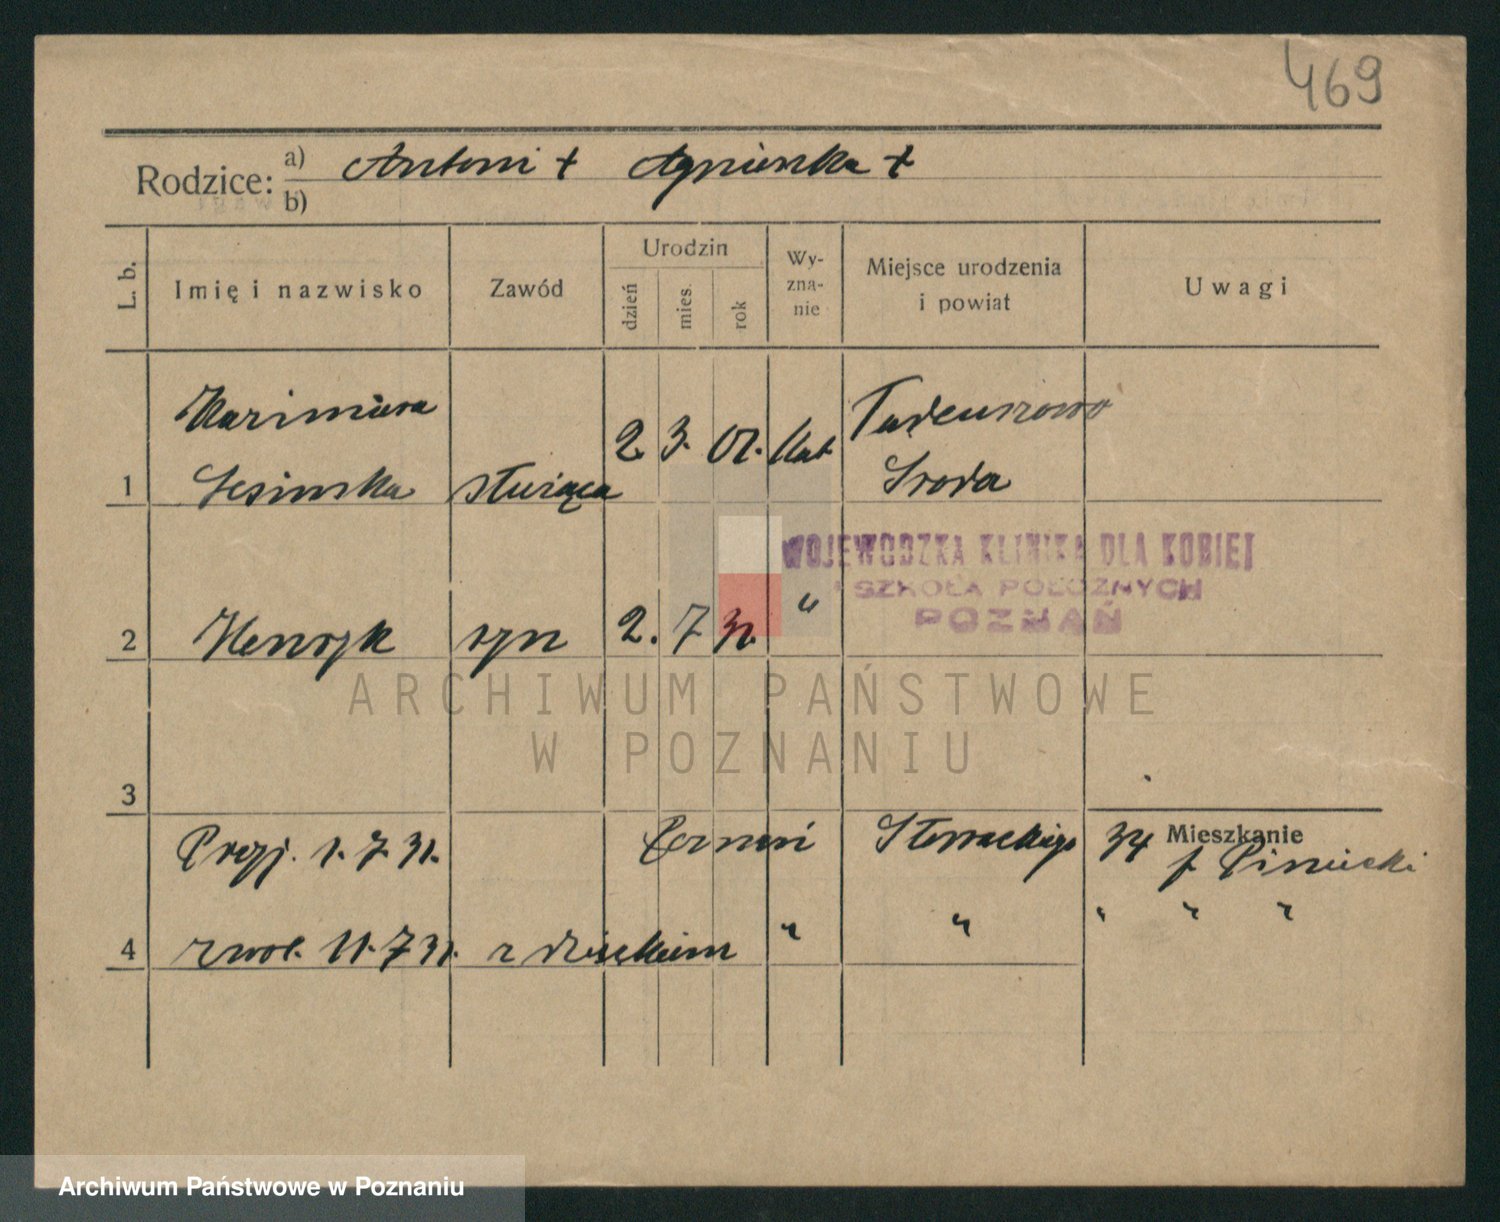 469
Rodzice: a) Antoni + Agnieszka +
b)
L. b.
Imię i nazwisko
Zawód
Urodzin
dzień
mies.
rok
Wy-
zna-
nie
Miejsce urodzenia
i powiat
Uwagi
Kazimiera
1 służąca 2. 3. 07. Kat
Tadeuszowo
Sroda
WOJEWÓDZKA KLINIKA DLA KOBIET
I SZKOŁA POŁOŻNYCH
POZNAŃ
2 Henryk syn 2. 7 31. "
3
Mieszkanie
Przyj. 1. 7. 31. Poznań Słowackiego 34
4 zwol. 11. 7 31. z dzieckiem " " " " "
ARCHIWUM PAŃSTWOWE
W POZNANIU
Archiwum Państwowe w Poznaniu